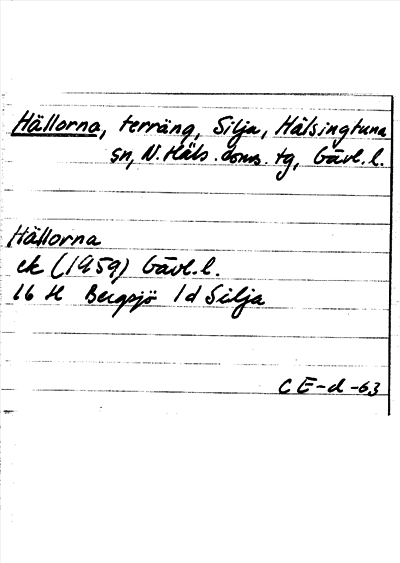 Hällorna, terräng, Silja, Hälsingtuna
sn, N. Häls. doms. tg, Gävl. l.
Hällorna
ek (1959) Gävl. l.
16 H Bergsjö 1 d Silja
C E-d-63